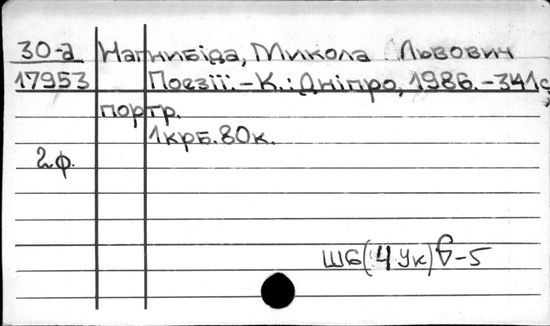 30-а Нагнибіда, Микола Львович
17953 Поезії.-К.:Дніпро, 1986.-341с,
портр.
1крб.80к.
2ф.
Ш6(4Ук)6-5